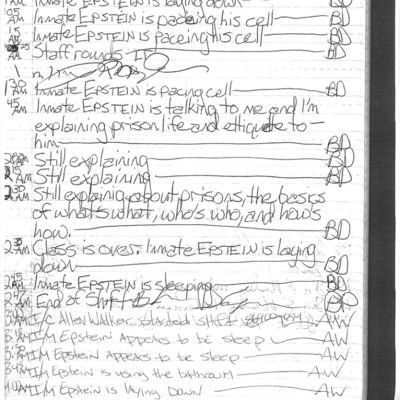 AM Inmate EPSTEIN is laying down BD
05 AM Inmate EPSTEIN is paceing his cell BD
15 AM Inmate EPSTEIN is paceing his cell BD
Staff rounds BD
130 AM Inmate EPSTEIN is pacing cell BD
45 AM Inmate EPSTEIN is talking to me and I'm
explaining prison life and etiquete to
him BD
200 AM Still explaining BD
215 AM Still explaining BD
Still explainig about prisons, the basics
of what's what, who's who, and how's
how. BD
230 AM Class is over. Inmate EPSTEIN is laying
down BD
245 AM Inmate EPSTEIN is sleeping BD
247 AM End of Shift BD
I/C Allen Walker started shift AW
AM I/M Epstein Appears to be sleep AW
AM I/M Epstein Appears to be sleep AW
AM I/M Epstein is using the bathroom AW
AM I/M Epstein is Laying Down AW